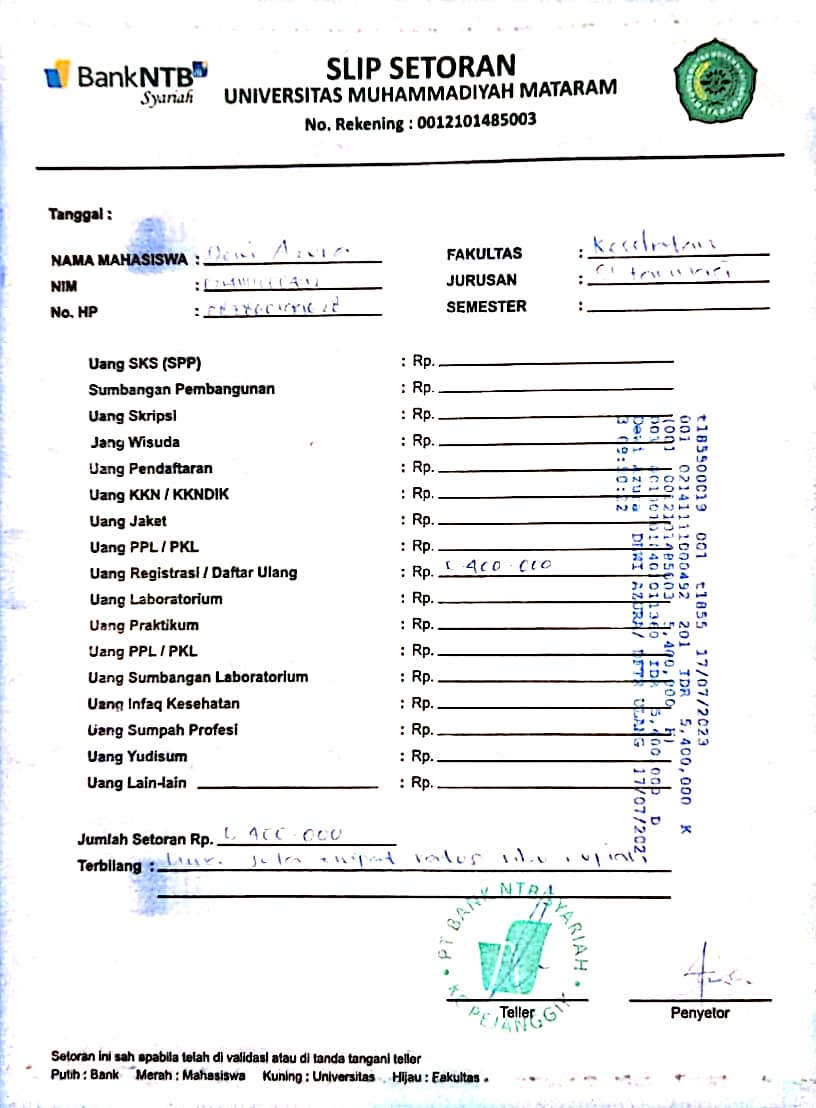 BankNTB
Syariah
SLIP SETORAN
UNIVERSITAS MUHAMMADIYAH MATARAM
No. Rekening : 0012101485003
Tanggal :
NAMA MAHASISWA : Dewi Azura
NIM :
No. HP :
FAKULTAS : Kesehatan
JURUSAN : S1 farmasi
SEMESTER :
Uang SKS (SPP) : Rp.
Sumbangan Pembangunan : Rp.
Uang Skripsi : Rp.
Uang Wisuda : Rp.
Uang Pendaftaran : Rp.
Uang KKN / KKNDIK : Rp.
Uang Jaket : Rp.
Uang PPL / PKL : Rp.
Uang Registrasi / Daftar Ulang : Rp. 5.400.000
Uang Laboratorium : Rp.
Uang Praktikum : Rp.
Uang PPL / PKL : Rp.
Uang Sumbangan Laboratorium : Rp.
Uang Infaq Kesehatan : Rp.
Uang Sumpah Profesi : Rp.
Uang Yudisum : Rp.
Uang Lain-lain : Rp.
t185500019 001 t1855 17/07/2023
001 0214111000492 201 IDR 5,400,000 K
(001 0012101485003 5,400,000 H)
IDR 5,400,000 D
Dewi Azura DEWI AZURA/ DFTR ULANG 17/07/202
3 09:30:22
Jumlah Setoran Rp. 5.400.000
Terbilang : Lima juta empat ratus ribu rupiah
PT BANK NTB SYARIAH
KC PEJANGGIK
Teller
Penyetor
Setoran ini sah apabila telah di validasi atau di tanda tangani teller
Putih : Bank Merah : Mahasiswa Kuning : Universitas Hijau : Fakultas